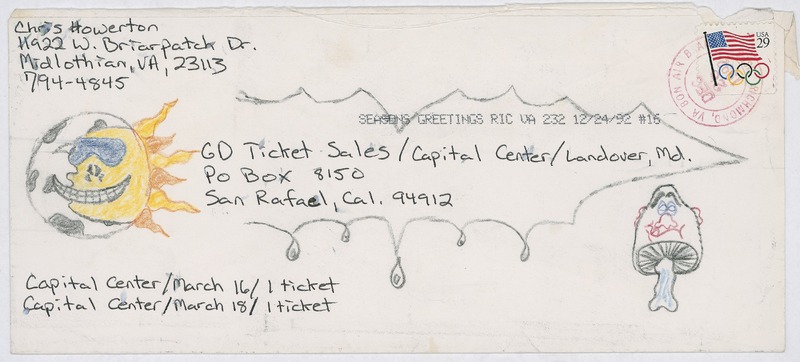 Chris Howerton
11922 W. Briarpatch Dr.
Midlothian, VA, 23113
794-4845
USA
29
RICHMOND, VA BON AIR
DEC
SEASONS GREETINGS RIC VA 232 12/24/92 #16
GD Ticket Sales/Capital Center/Landover, Md.
PO Box 8150
San Rafael, Cal. 94912
Capital Center/March 16/1 ticket
Capital Center/March 18/1 ticket